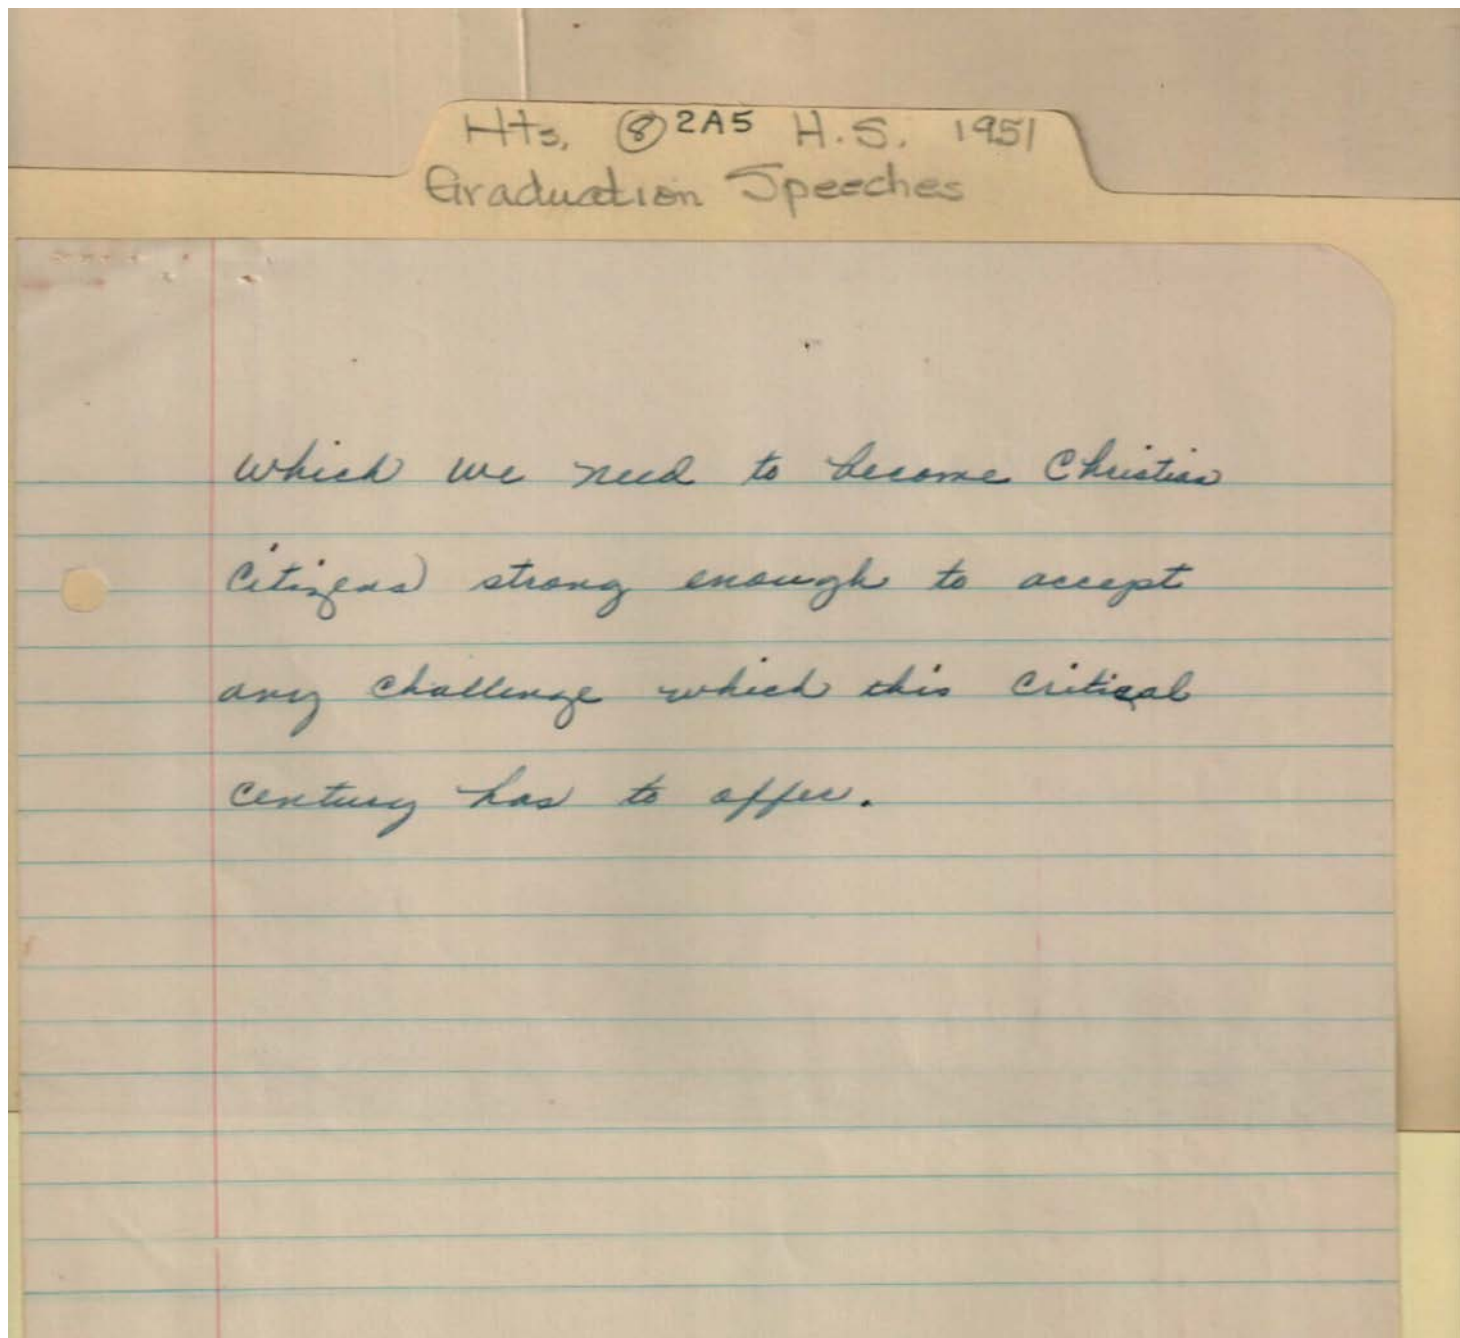 Hts. ⑧ 2A5 H.S. 1951
Graduation Speeches
which we need to become Christian
citizens strong enough to accept
any challenge which this critical
century has to offer.